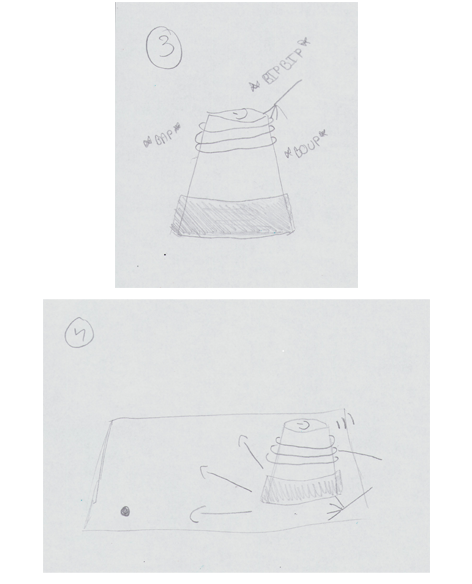 3
*BIPBIP*
*BAP*
*BOUP*
4